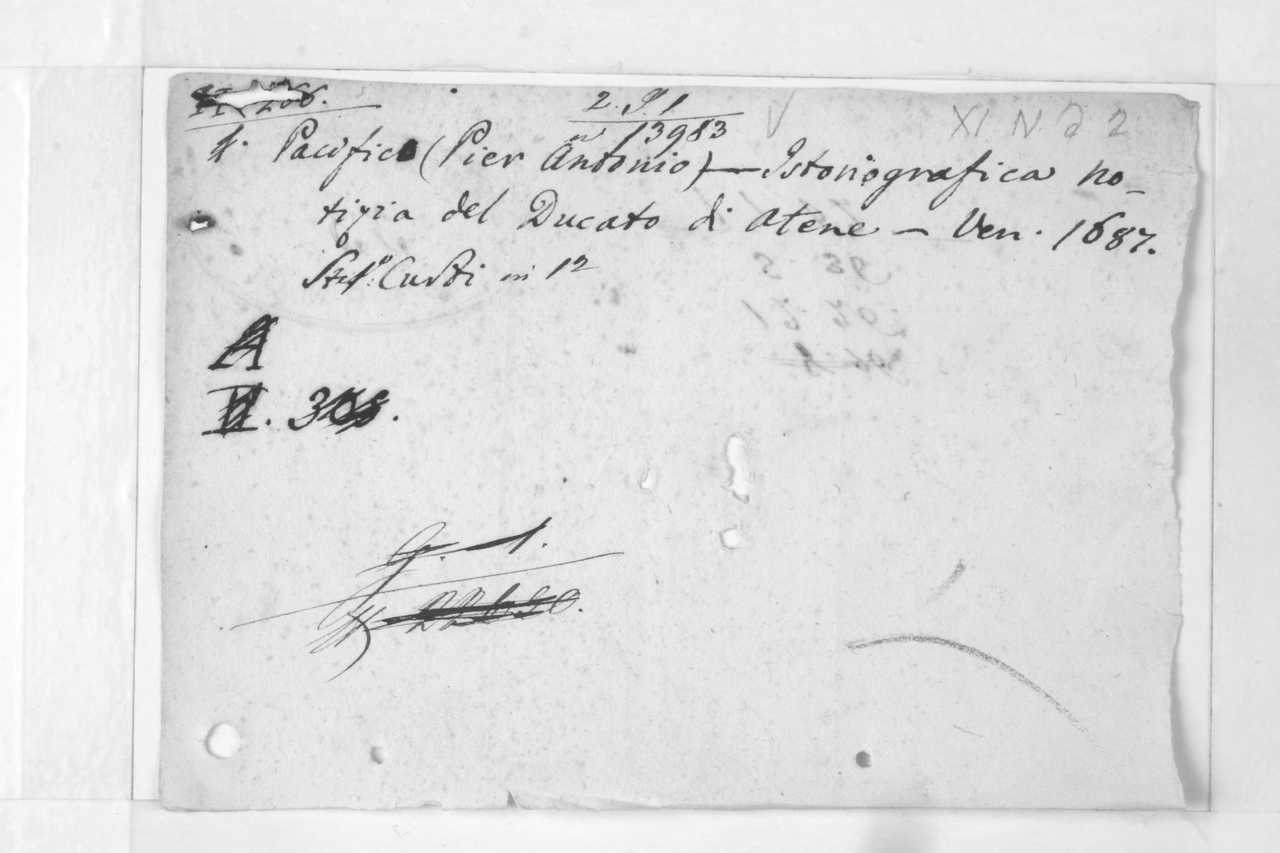 266.
2. P. 1
13983
XI N 2 2
Pacifico (Pier Antonio) — Istoriografica no-
tizia del Ducato di Atene — Ven. 1687.
Curti in 12
A
V. 305.
G. 1.